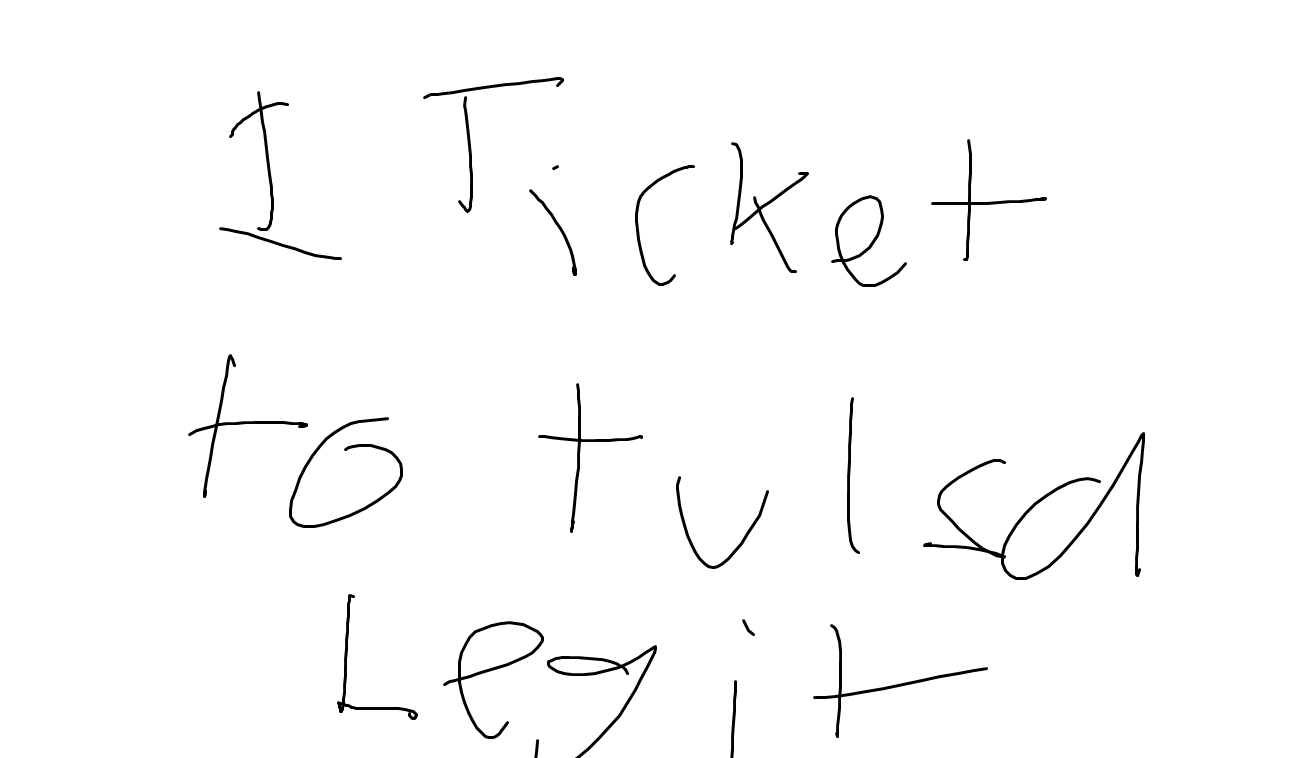 1 Ticket
to tulsa
Legit